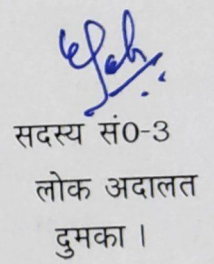 सदस्य सं0-3
लोक अदालत
दुमका ।